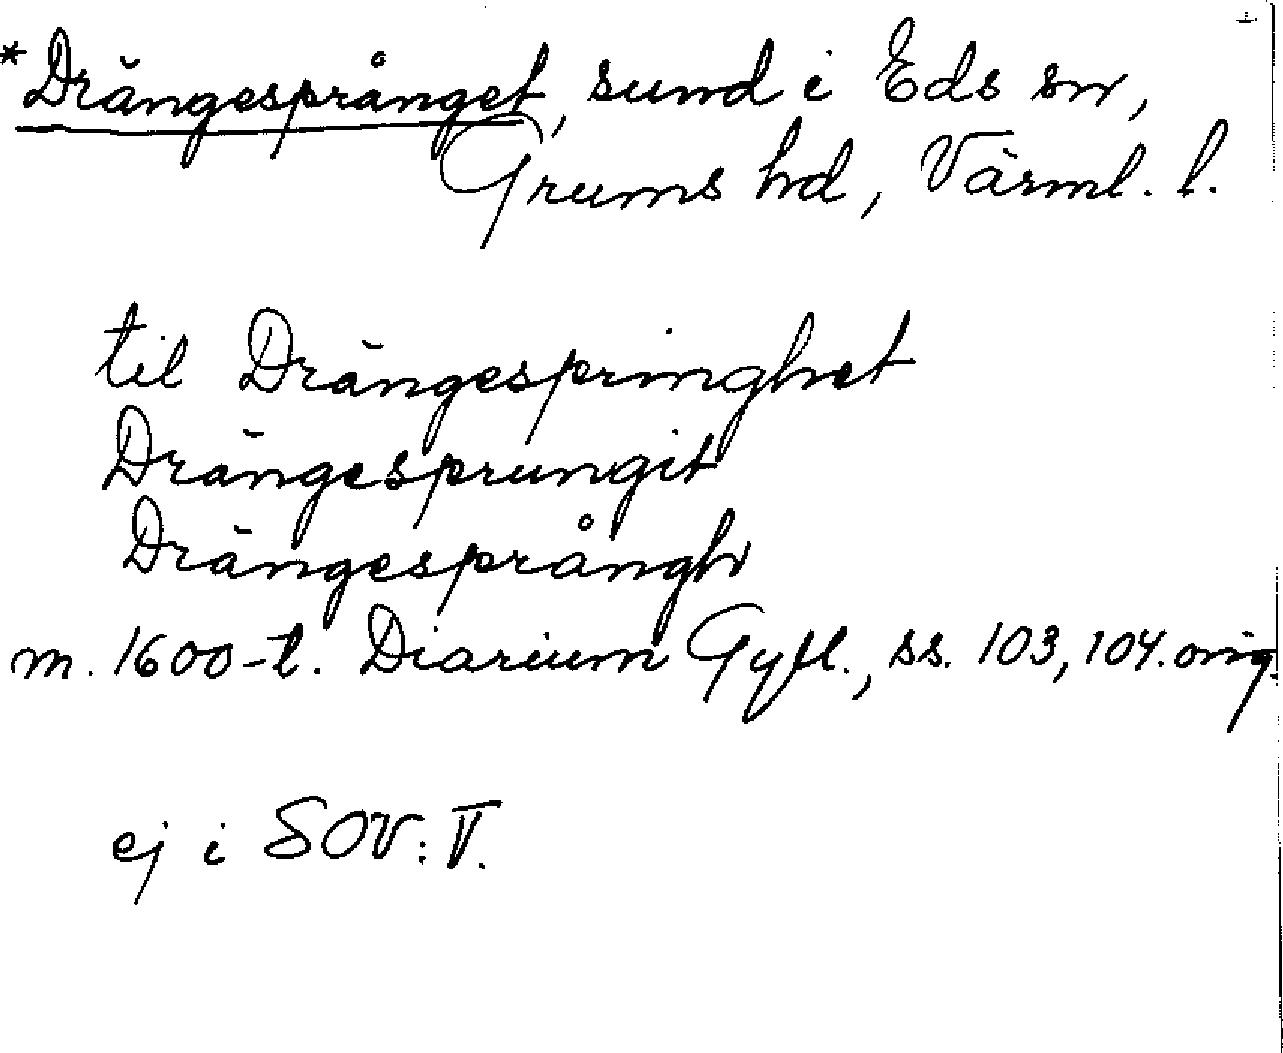 *Drängesprånget, sund i Eds sn,
Grums hd, Värml. l.
til Drängespringhet
Drängesprungit
Drängesprångh
m. 1600-t. Diarium Gyll., ss. 103, 104. orig.
ej i SOV: V.